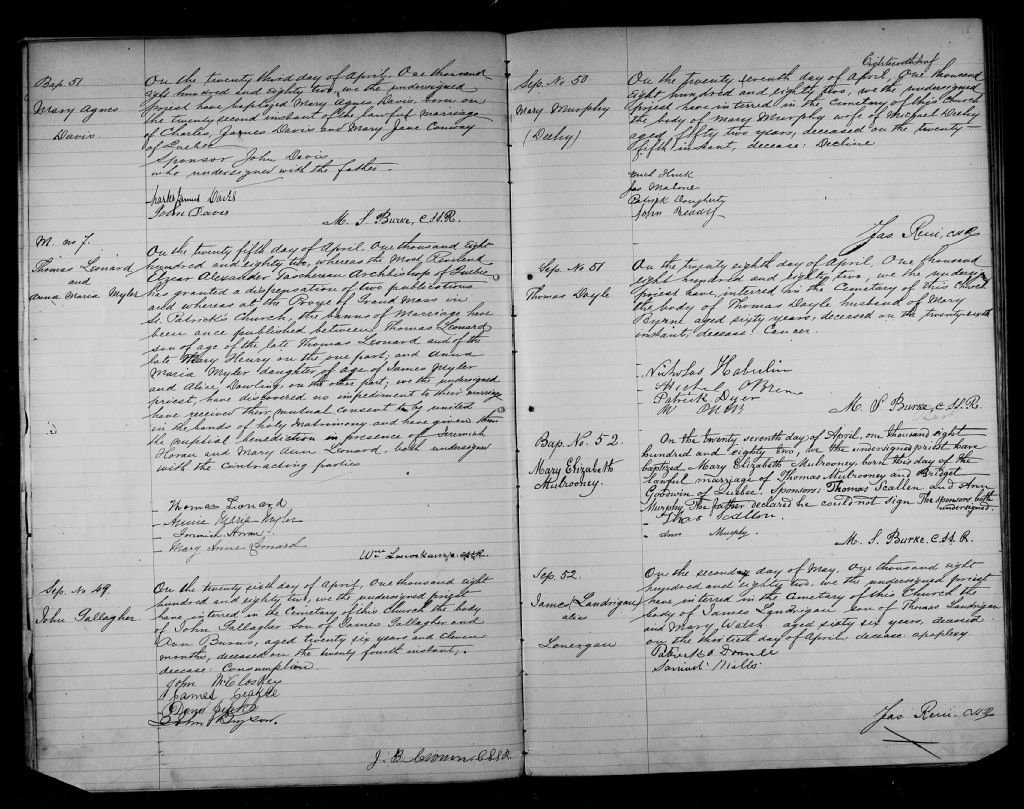 Bap. 51
Mary Agnes
Davis.
On the twenty third day of April, One thousand
eight hundred and eighty two, we the undersigned
priest have baptized Mary Agnes Davis, born on
the twenty second instant of the lawful marriage
of Charles James Davis and Mary Jane Conway
of Quebec
Sponsor John Davis
who undersigned with the father.
Charles James Davis
John Davis
M. S. Burke, C.SS.R.
M. no 7.
Thomas Leonard
and
Anna Maria Myler
On the twenty fifth day of April, One thousand Eight
hundred and eighty two, whereas the Most Reverend
Elzear Alexander Taschereau Archbishop of Quebec
has granted a dispensation of two publications
and whereas at the Prone of Grand Mass in
St. Patrick's Church, the banns of Marriage have
been once published between Thomas Leonard
son of age of the late Thomas Leonard and of the
late Mary Henry on the one part, and Anna
Maria Myler daughter of age of James Myler
and Alice Dowling, on the other part; we the undersigned
priest, have discovered no impediment to their marriage
have received their mutual consent to by united
in the bonds of holy Matrimony and have given them
the nuptial benediction in presence of Jeremiah
Horan and Mary Ann Leonard, both undersigned
with the contracting parties
Thomas Leonard
Annie Maria Myler
Jeremiah Horan
Mary Annie Leonard
Wm C.SS.R.
Sep. No 49
John Gallagher
On the twenty sixth day of April, One thousand eight
hundred and eighty two, we the undersigned priest
have interred in the Cemetery of this Church the body
of John Gallagher Son of James Gallagher and
Ann Burns, aged twenty six years and eleven
months, deceased on the twenty fourth instant;
decease: Consumption.
John McCloskey
James
David
John Bryson.
J. B. Cronin C.SS.R.
Sep. No 50
Mary Murphy
(Deehy)
On the twenty seventh day of April, One thousand
eight hundred and eighty two, we the undersigned
priest have interred in the Cemetery of this Church
the body of Mary Murphy wife of Michael Deehy
aged fifty two years, deceased on the twenty
fifth instant, decease: Decline
Jas Malone
Patrick Dougherty
John Ready
Jas Rein, CSSR
Sep. No 51
Thomas Doyle
On the twenty eighth day of April, One thousand
eight hundred and eighty two, we the undersigned
priest have, interred in the Cemetery of this Church
the body of Thomas Doyle husband of Mary
Byrne aged sixty years, deceased on the twenty sixth
instant, decease: Cancer.
Nicholas
Michael O'Brien
Patrick Dyer
M. S. Burke, C.SS.R.
Bap. No. 52.
Mary Elizabeth
Mulrooney.
On the twenty seventh day of April, one thousand eight
hundred and eighty two, we the undersigned priest have
baptized Mary Elizabeth Mulrooney, born this day of the
lawful marriage of Thomas Mulrooney and Bridget
Goodwin of Quebec. Sponsors: Thomas Scallen and Ann
Murphy. The father declared he could not sign. The sponsors both
undersigned.
Thos Scallon.
Ann Murphy.
M. S. Burke, C.SS.R.
Sep. 52.
James (Landrigan)
alias
Lonergan
On the second day of May, One thousand
eight hundred and eighty two, we the undersigned priest
have interred in the Cemetery of this Church the
body of James Landrigan son of Thomas Landrigan
and Mary Walsh aged sixty six years, deceased
on the thirtieth day of April decease: apoplexy.
Patrick
Samuel
Jas Rein, CSSR